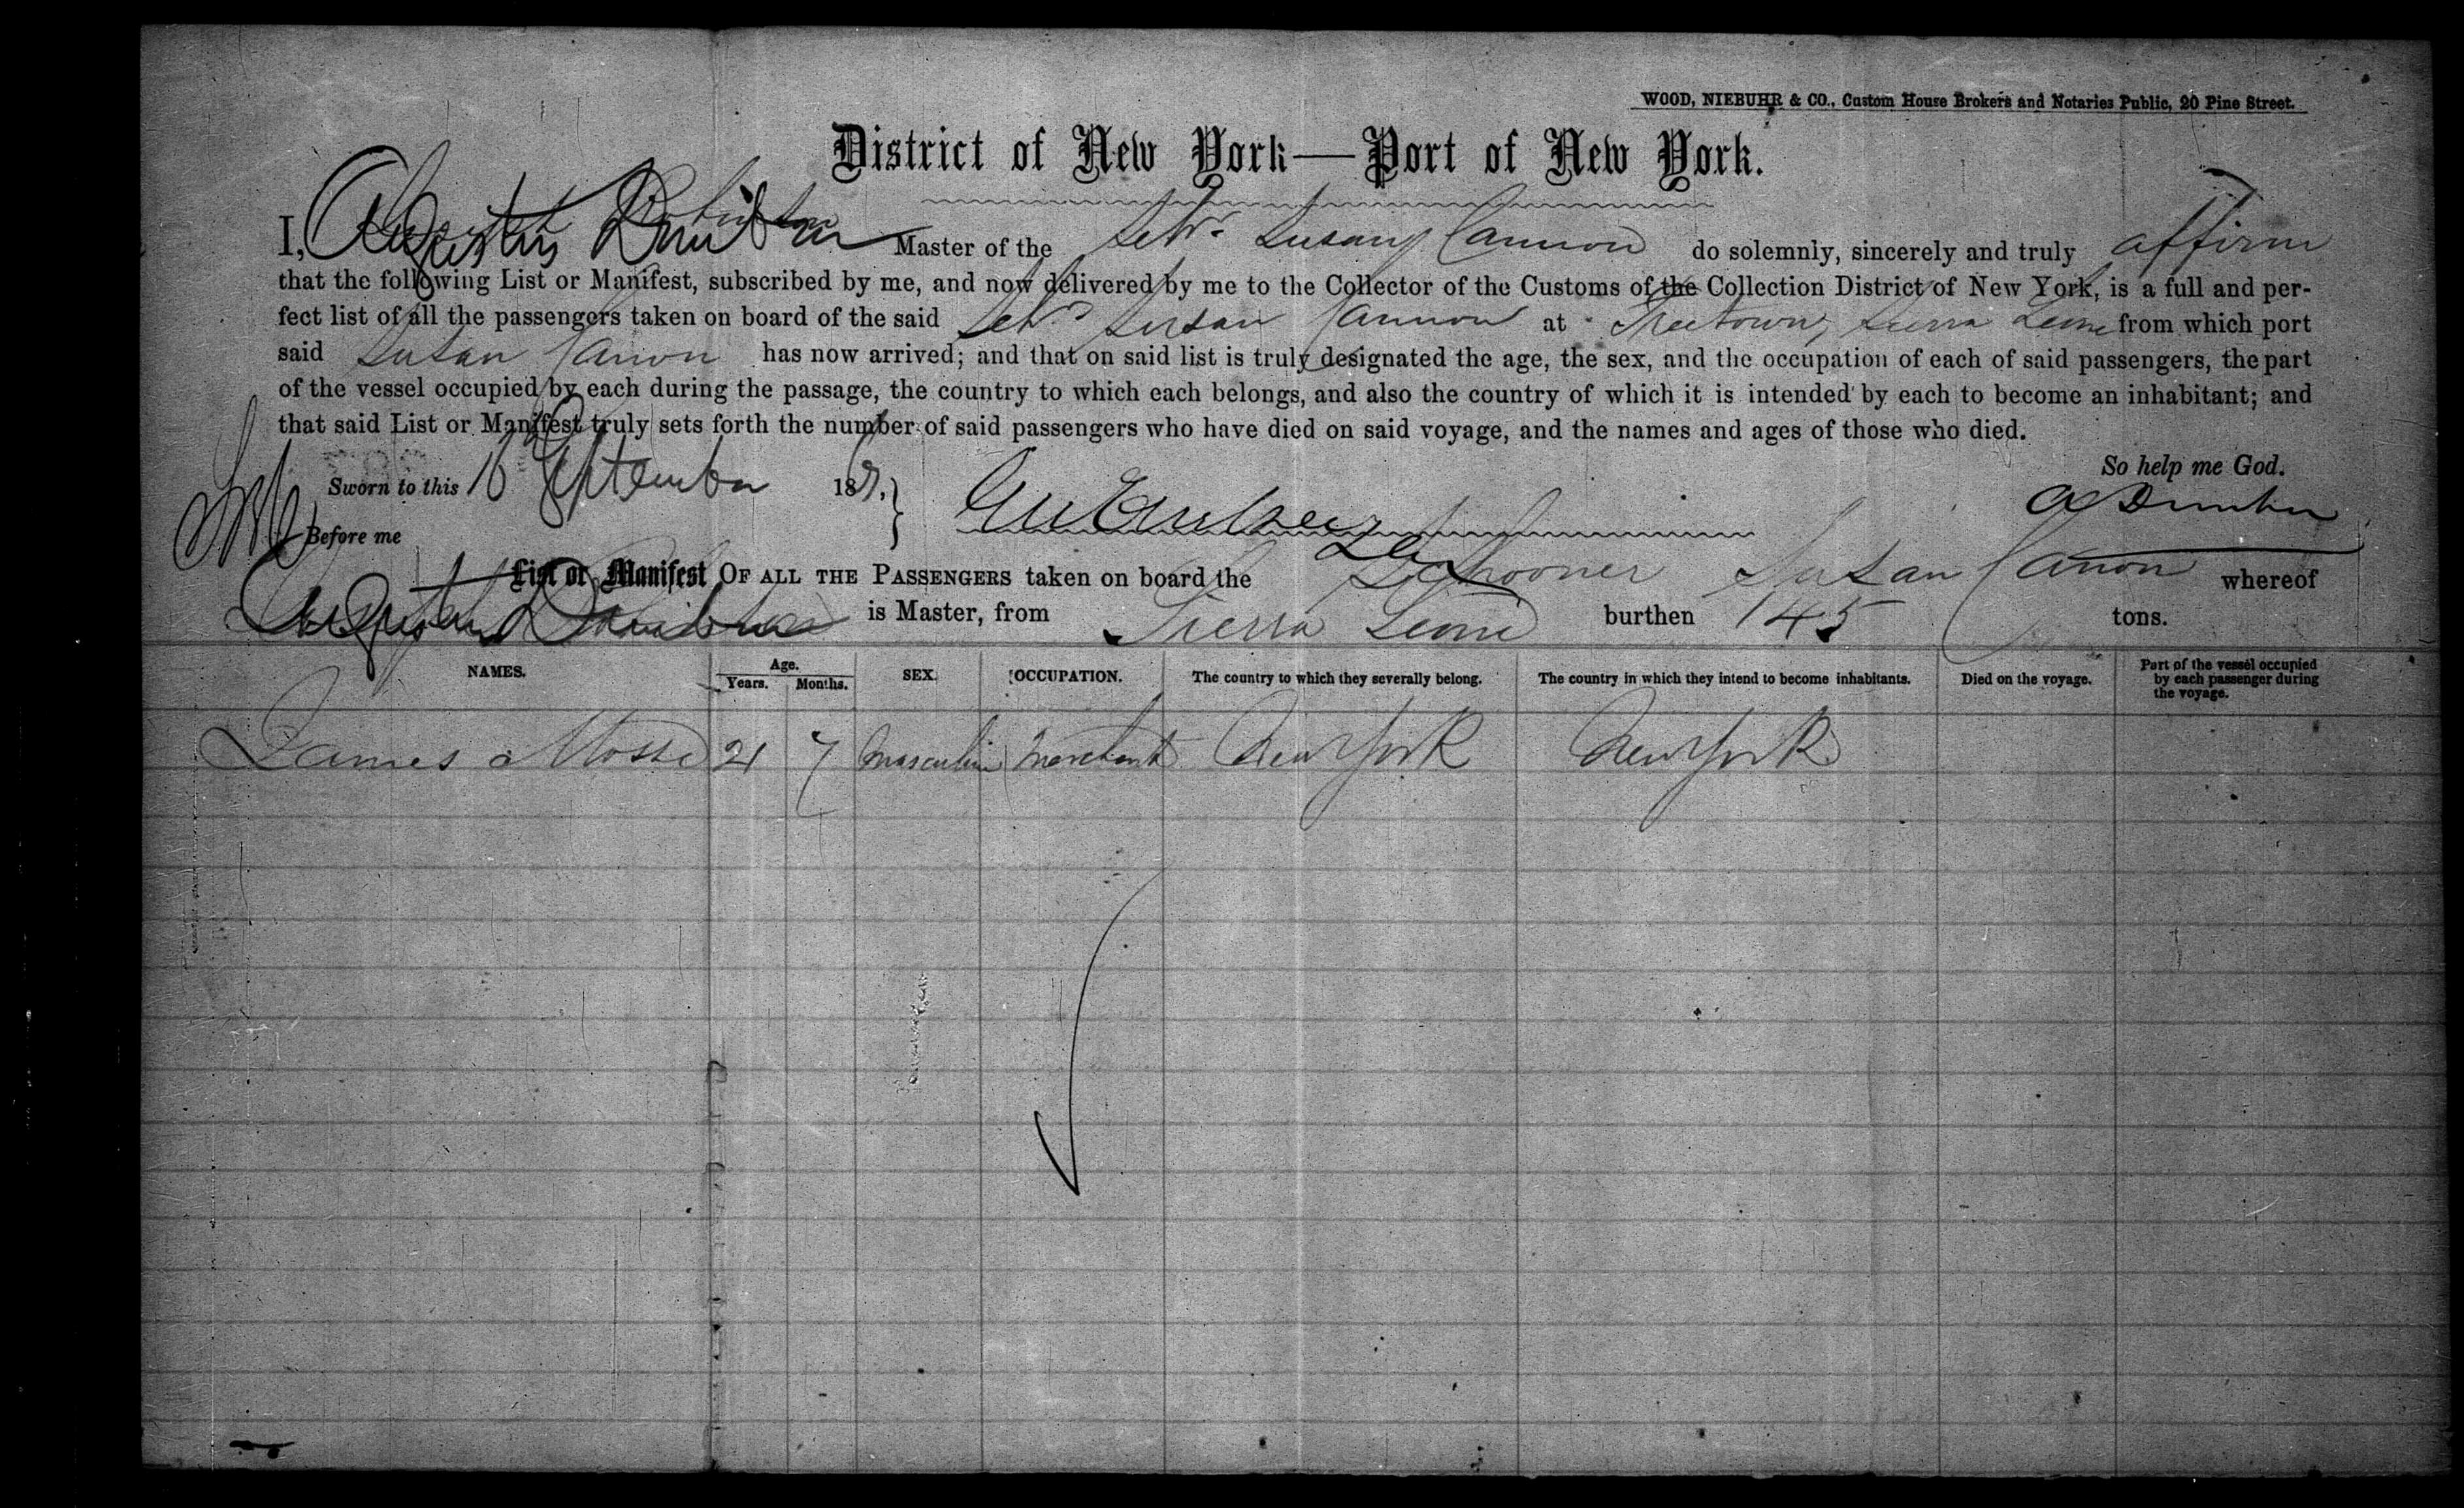 WOOD, NIEBUHR & CO., Custom House Brokers and Notaries Public, 20 Pine Street.
District of New York—Port of New York.
I, Augustus Master of the Schr. Susan Cannon do solemnly, sincerely and truly affirm
that the following List or Manifest, subscribed by me, and now delivered by me to the Collector of the Customs of the Collection District of New York, is a full and per-
fect list of all the passengers taken on board of the said Schr Susan Cannon at Freetown, Sierra Leone from which port
said Susan Canon has now arrived; and that on said list is truly designated the age, the sex, and the occupation of each of said passengers, the part
of the vessel occupied by each during the passage, the country to which each belongs, and also the country of which it is intended by each to become an inhabitant; and
that said List or Manifest truly sets forth the number of said passengers who have died on said voyage, and the names and ages of those who died.
So help me God.
Sworn to this 16 September 186
Before me
List or Manifest OF ALL THE PASSENGERS taken on board the Schooner Susan Canon whereof
is Master, from Sierra Leone burthen 145 tons.
NAMES. Age. Years. Months. SEX. OCCUPATION. The country to which they severally belong. The country in which they intend to become inhabitants. Died on the voyage. Part of the vessel occupied by each passenger during the voyage.
James Mosse 21 7 Masculin Merchant New York New York